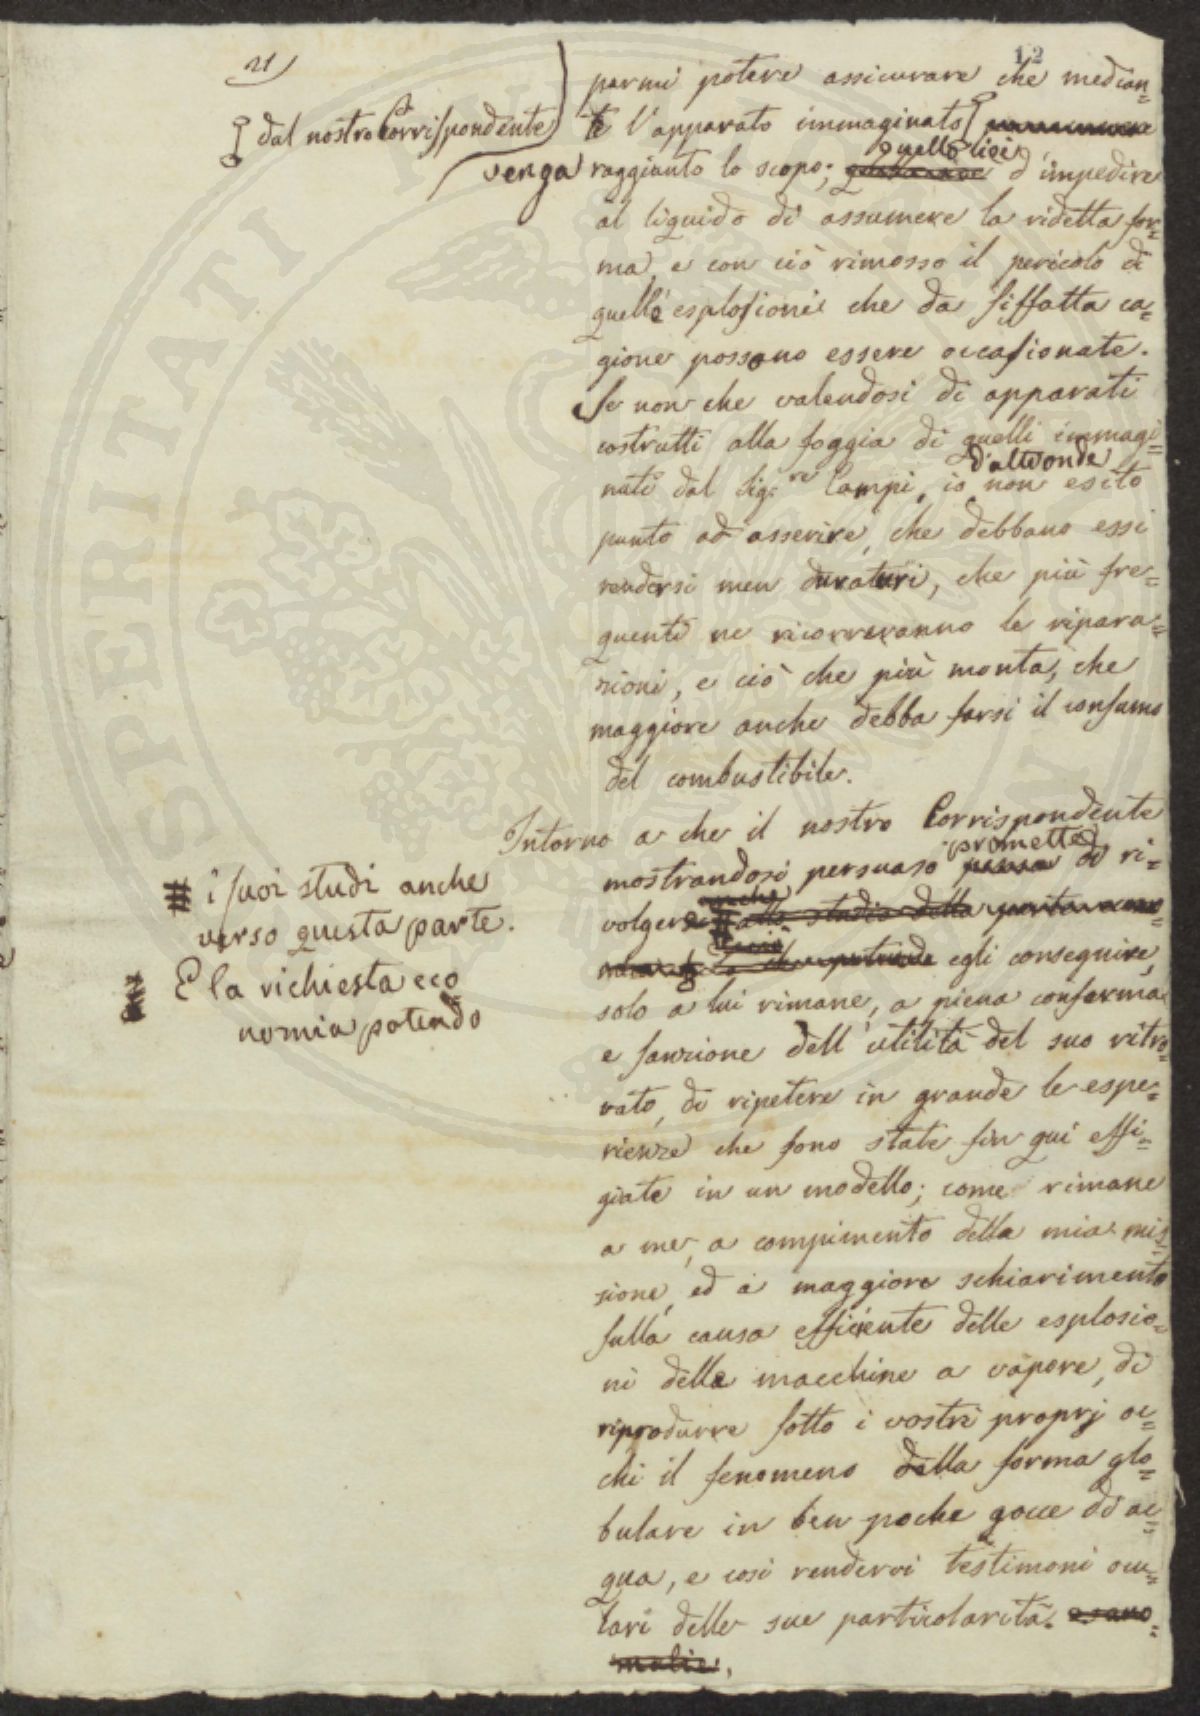 21
12
parmi potere assicurare che median-
te l'apparato immaginato
dal nostro Corrispondente
venga raggiunto lo scopo; quello cioè d'impedire
al liquido di assumere la ridetta for-
ma, e con ciò rimosso il pericolo di
quelle esplosioni che da siffatta ca-
gione possono essere occasionate.
Se non che valendosi di apparati
costrutti alla foggia di quelli immagi-
nati dal Sig.re Campi, io d'altronde non esito
punto ad asserire, che debbano essi
rendersi men duraturi, che più fre-
quenti ne ricorreranno le ripara-
zioni, e ciò che più monta, che
maggiore anche debba farsi il consumo
del combustibile.
Intorno a che il nostro Corrispondente
mostrandosi persuaso promette di ri-
volgere
# i suoi studi anche
verso questa parte.
E la richiesta eco
nomia potendo
egli conseguire,
solo a lui rimane, a piena conferma
e sanzione dell'utilità del suo ritro-
vato, di ripetere in grande le espe-
rienze che sono state fin qui effi-
giate in un modello; come rimane
a me, a compimento della mia mis-
sione, ed a maggiore schiarimento
sulla causa efficiente delle esplosio-
ni delle macchine a vapore, di
riprodurre sotto i vostri proprj oc-
chi il fenomeno della forma glo-
bulare in ben poche gocce di ac-
qua, e così rendervi testimoni ocu-
lari delle sue particolarità. e sano-
malie.